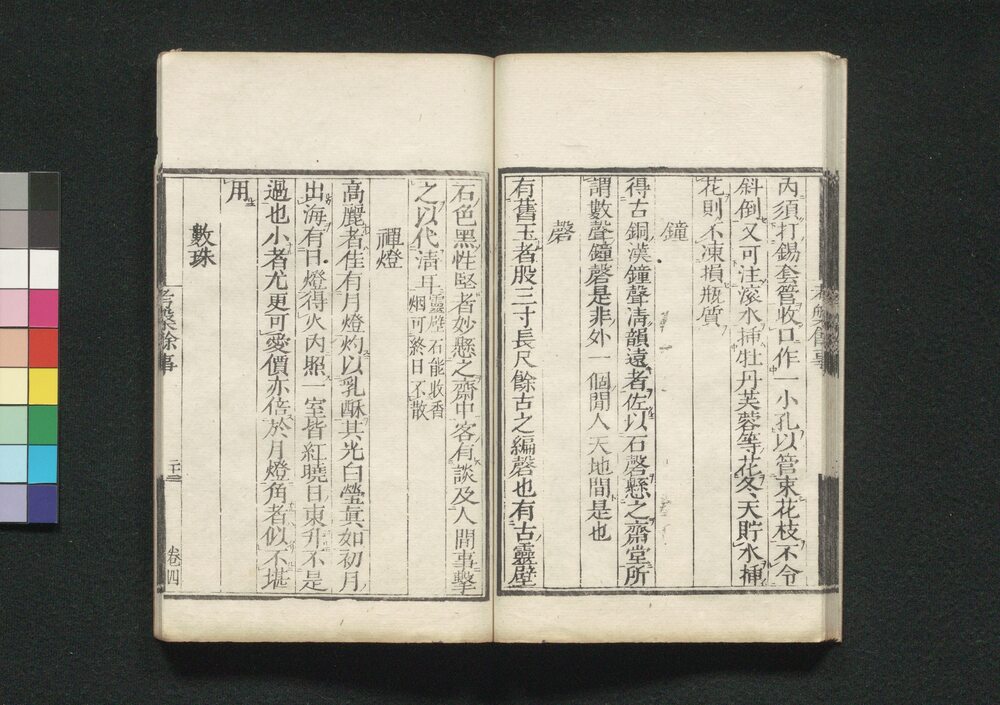 內須打錫套管收口作一小孔以管束花枝不令
斜倒又可注滾水揷牡丹芙蓉等花冬天貯水揷
花則不凍損瓶質
鐘
得古銅漢鐘聲淸韻遠者佐以石磬懸之齋堂所
謂數聲鐘磬是非外一個閒人天地間是也
磬
有舊玉者股三寸長尺餘古之編磬也有古靈壁
石色黑性堅者妙懸之齋中客有談及人間事擊
之以代淸耳靈壁石能收香
烟可終日不散
禪燈
高麗者佳有月燈灼以乳酥其光白瑩眞如初月
出海有日燈得火內照一室皆紅曉日東升不是
過也小者尤更可愛價亦倍於月燈角者似不堪
用
數珠
考槃餘事
二十二
卷四